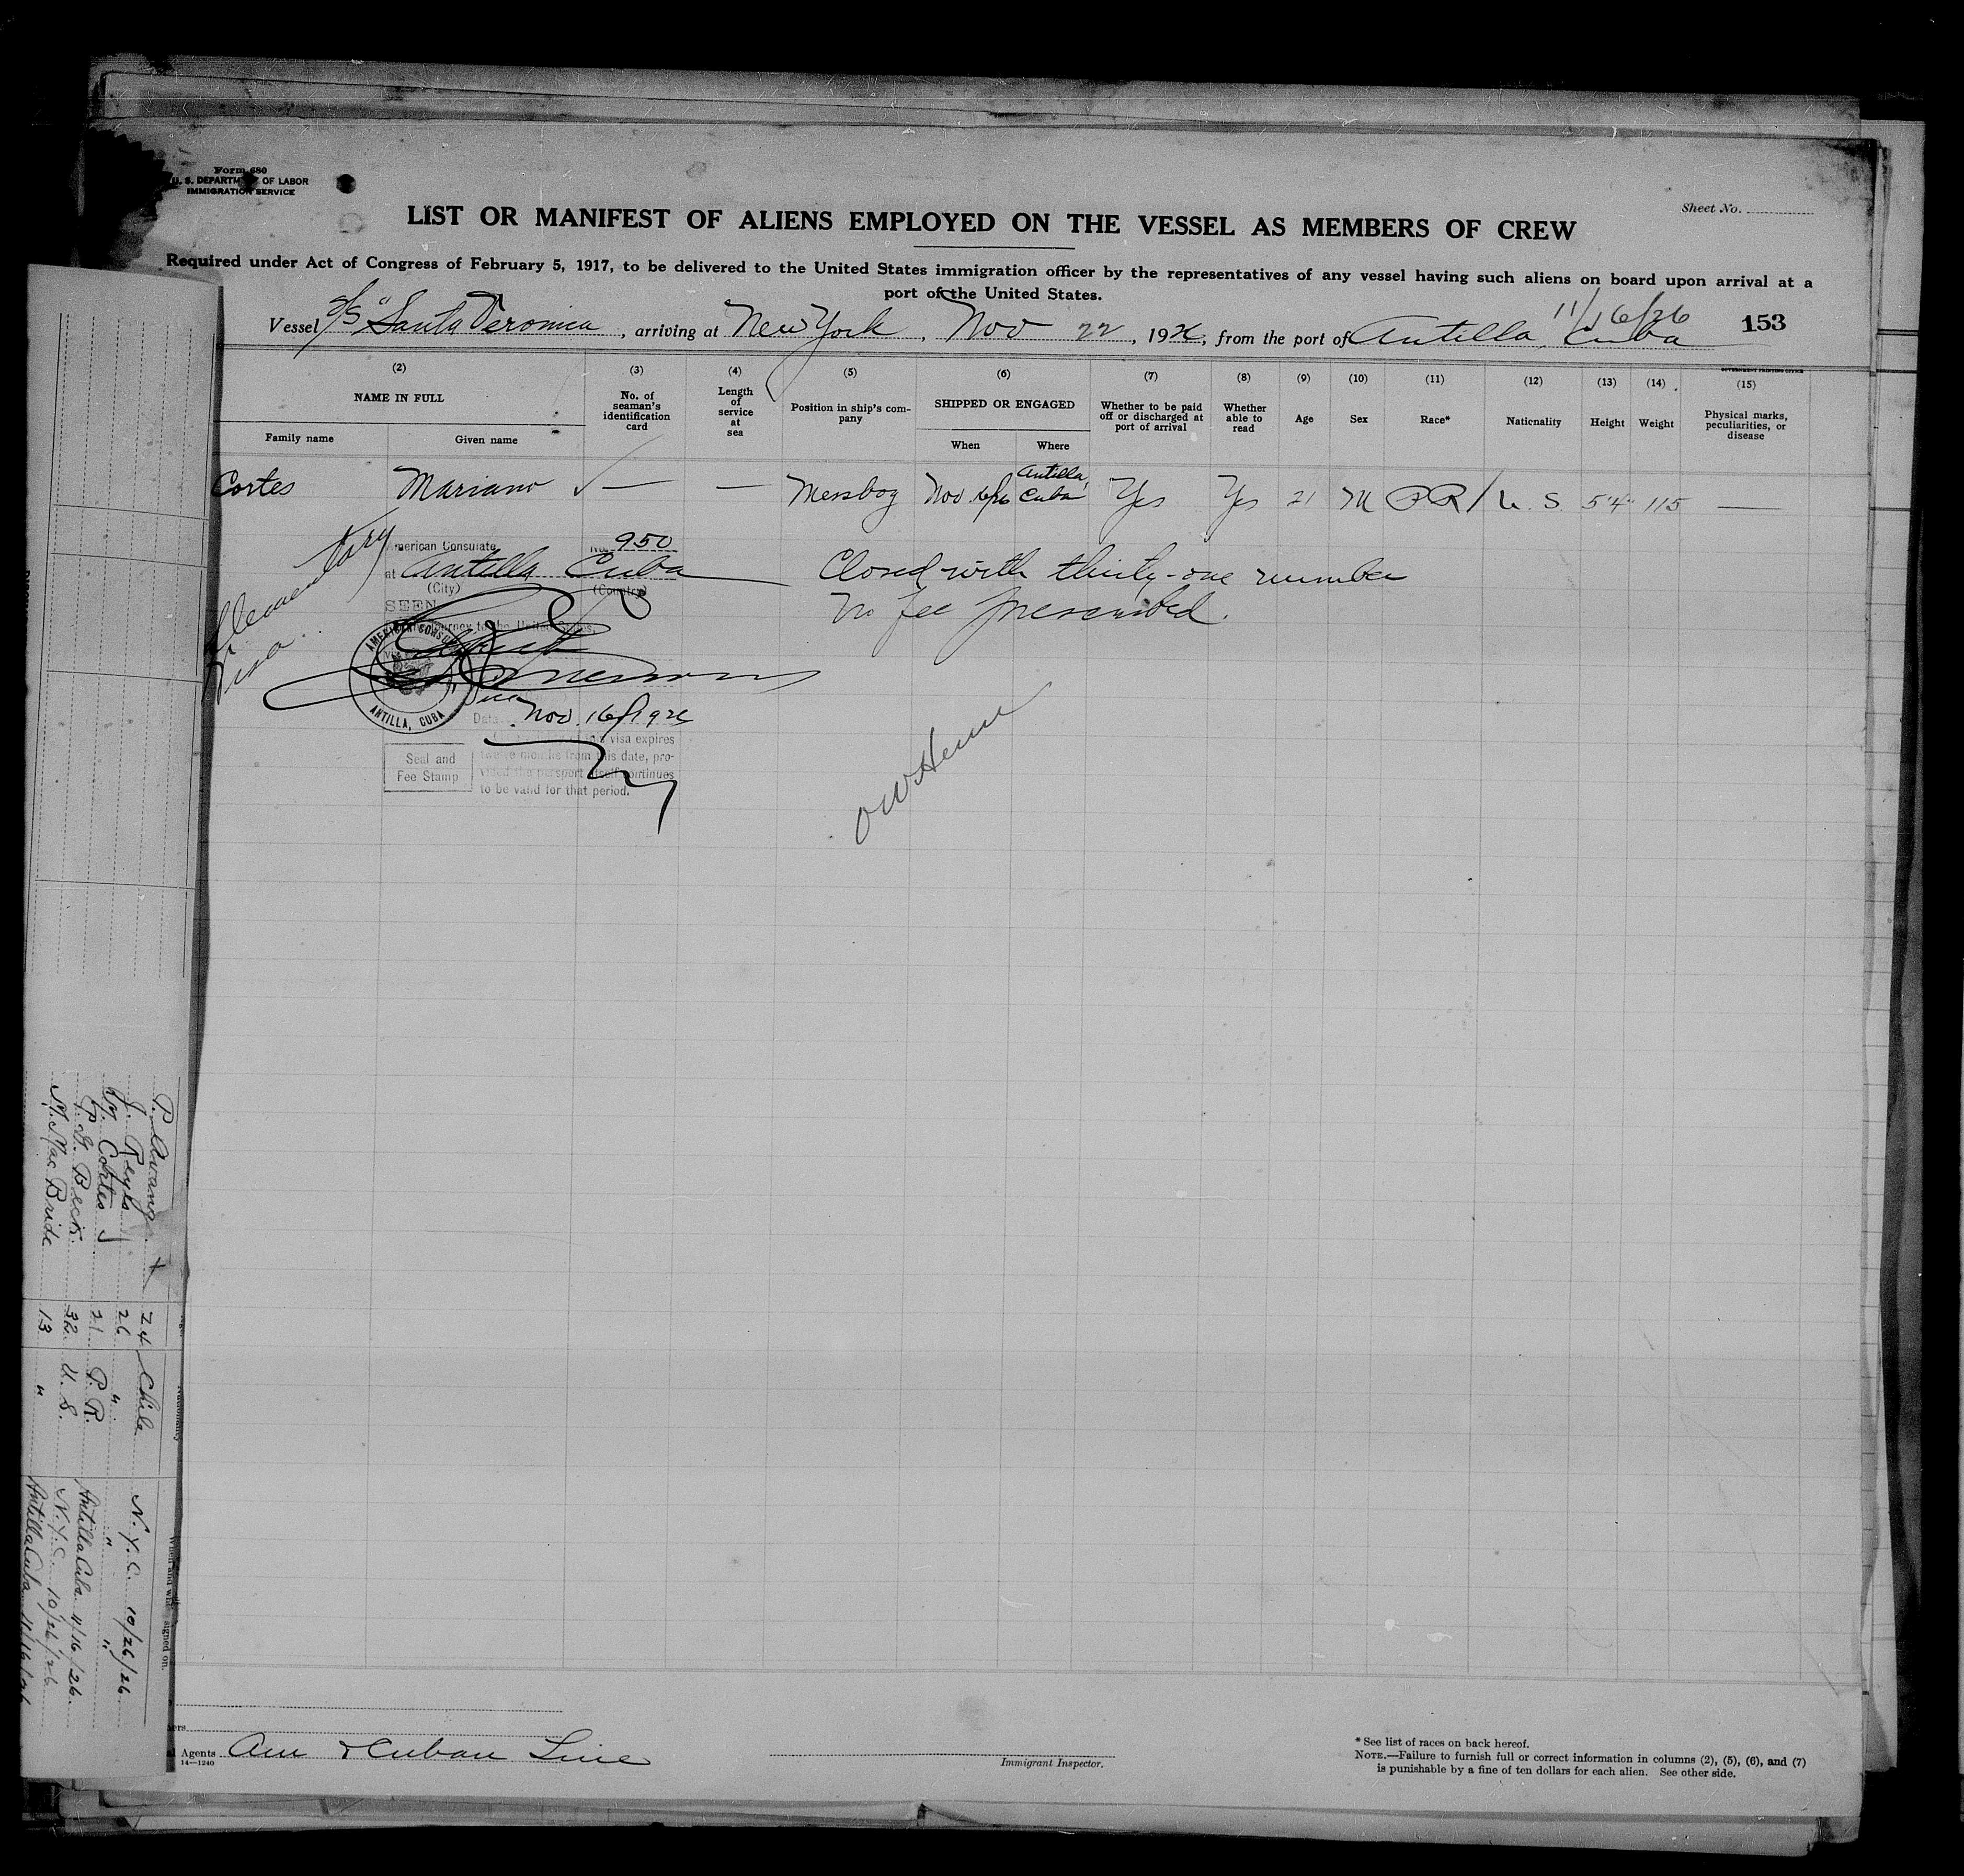 Form 680
U. S. DEPARTMENT OF LABOR
IMMIGRATION SERVICE
Sheet No.
LIST OR MANIFEST OF ALIENS EMPLOYED ON THE VESSEL AS MEMBERS OF CREW
Required under Act of Congress of February 5, 1917, to be delivered to the United States immigration officer by the representatives of any vessel having such aliens on board upon arrival at a
port of the United States.
11/16/26
Vessel S/S "Santa Veronica, arriving at New York, Nov 22, 1926, from the port of Antilla, Cuba 153
(2) (3) (4) (5) (6) (7) (8) (9) (10) (11) (12) (13) (14) (15)
NAME IN FULL
Family name Given name
No. of seaman's identification card
Length of service at sea
Position in ship's company
SHIPPED OR ENGAGED
When Where
Whether to be paid off or discharged at port of arrival
Whether able to read
Age Sex Race* Nationality Height Weight
Physical marks, peculiarities, or disease
Cortes Mariano — — Messboy Nov. 16/26 Antilla, Cuba Yes Yes 21 M PR / U. S 5'4" 115 —
American Consulate No. 950
at Antilla Cuba
(City) (Country)
SEEN
journey to the United States.
Closed with thirty-one number
No fee prescribed.
Visa
AMERICAN CONSU
ANTILLA, CUBA
Date Nov. 16/1926
visa expires
twelve months from this date, pro-
vided the passport itself continues
to be valid for that period.
Seal and
Fee Stamp
P. 24 Chile N.Y.C. 10/26/26
J. Reyes 26 " " "
M. Cortes 21 P.R. Antilla Cuba 11/16/26
P. G. Beck 32 U.S. N.Y.C. 10/26/26
M. MacBride 13 " Antilla Cuba 11/16/26
signed on.
Agents Am & Cuban Line
14—1240
Immigrant Inspector.
* See list of races on back hereof.
NOTE.—Failure to furnish full or correct information in columns (2), (5), (6), and (7)
is punishable by a fine of ten dollars for each alien. See other side.